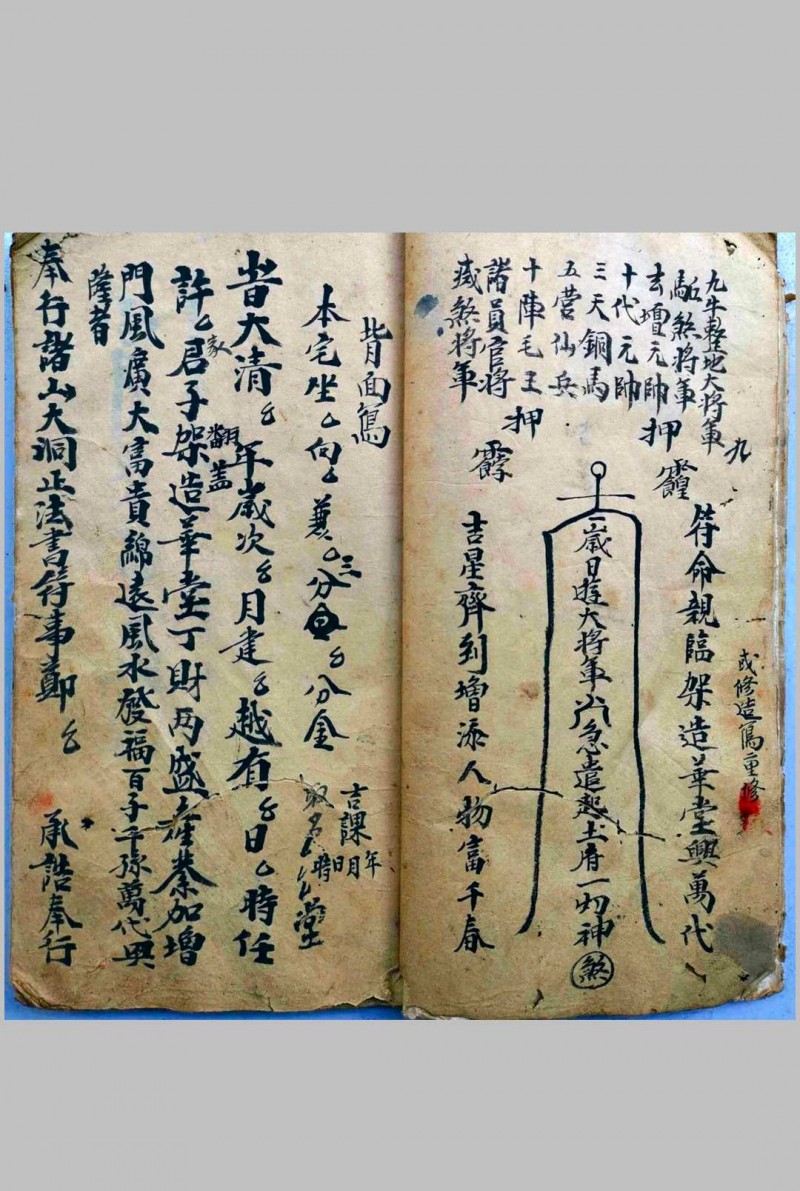 九牛整地大將軍
九
駈煞將軍
玄壇元帥
押
十代元帥
三天銅馬
五營仙兵
十陣毛王
押
諸員官將
藏煞將軍
符命親臨架造華堂興萬代
或修造寫重修
一歲日遊大將軍
急遣起土府一切神煞
吉星齊到增添人物富千春
背面寫
本宅坐向兼三分分金
吉課年月日時
堂
旹大清年歲次月建越有日時任
許君子架造華堂丁財兩盛產業加增
家
翻蓋
門風廣大富貴綿遠風水發福百子千孫萬代興
隆者
奉行諸山大洞正法書符事鄭
承誥奉行